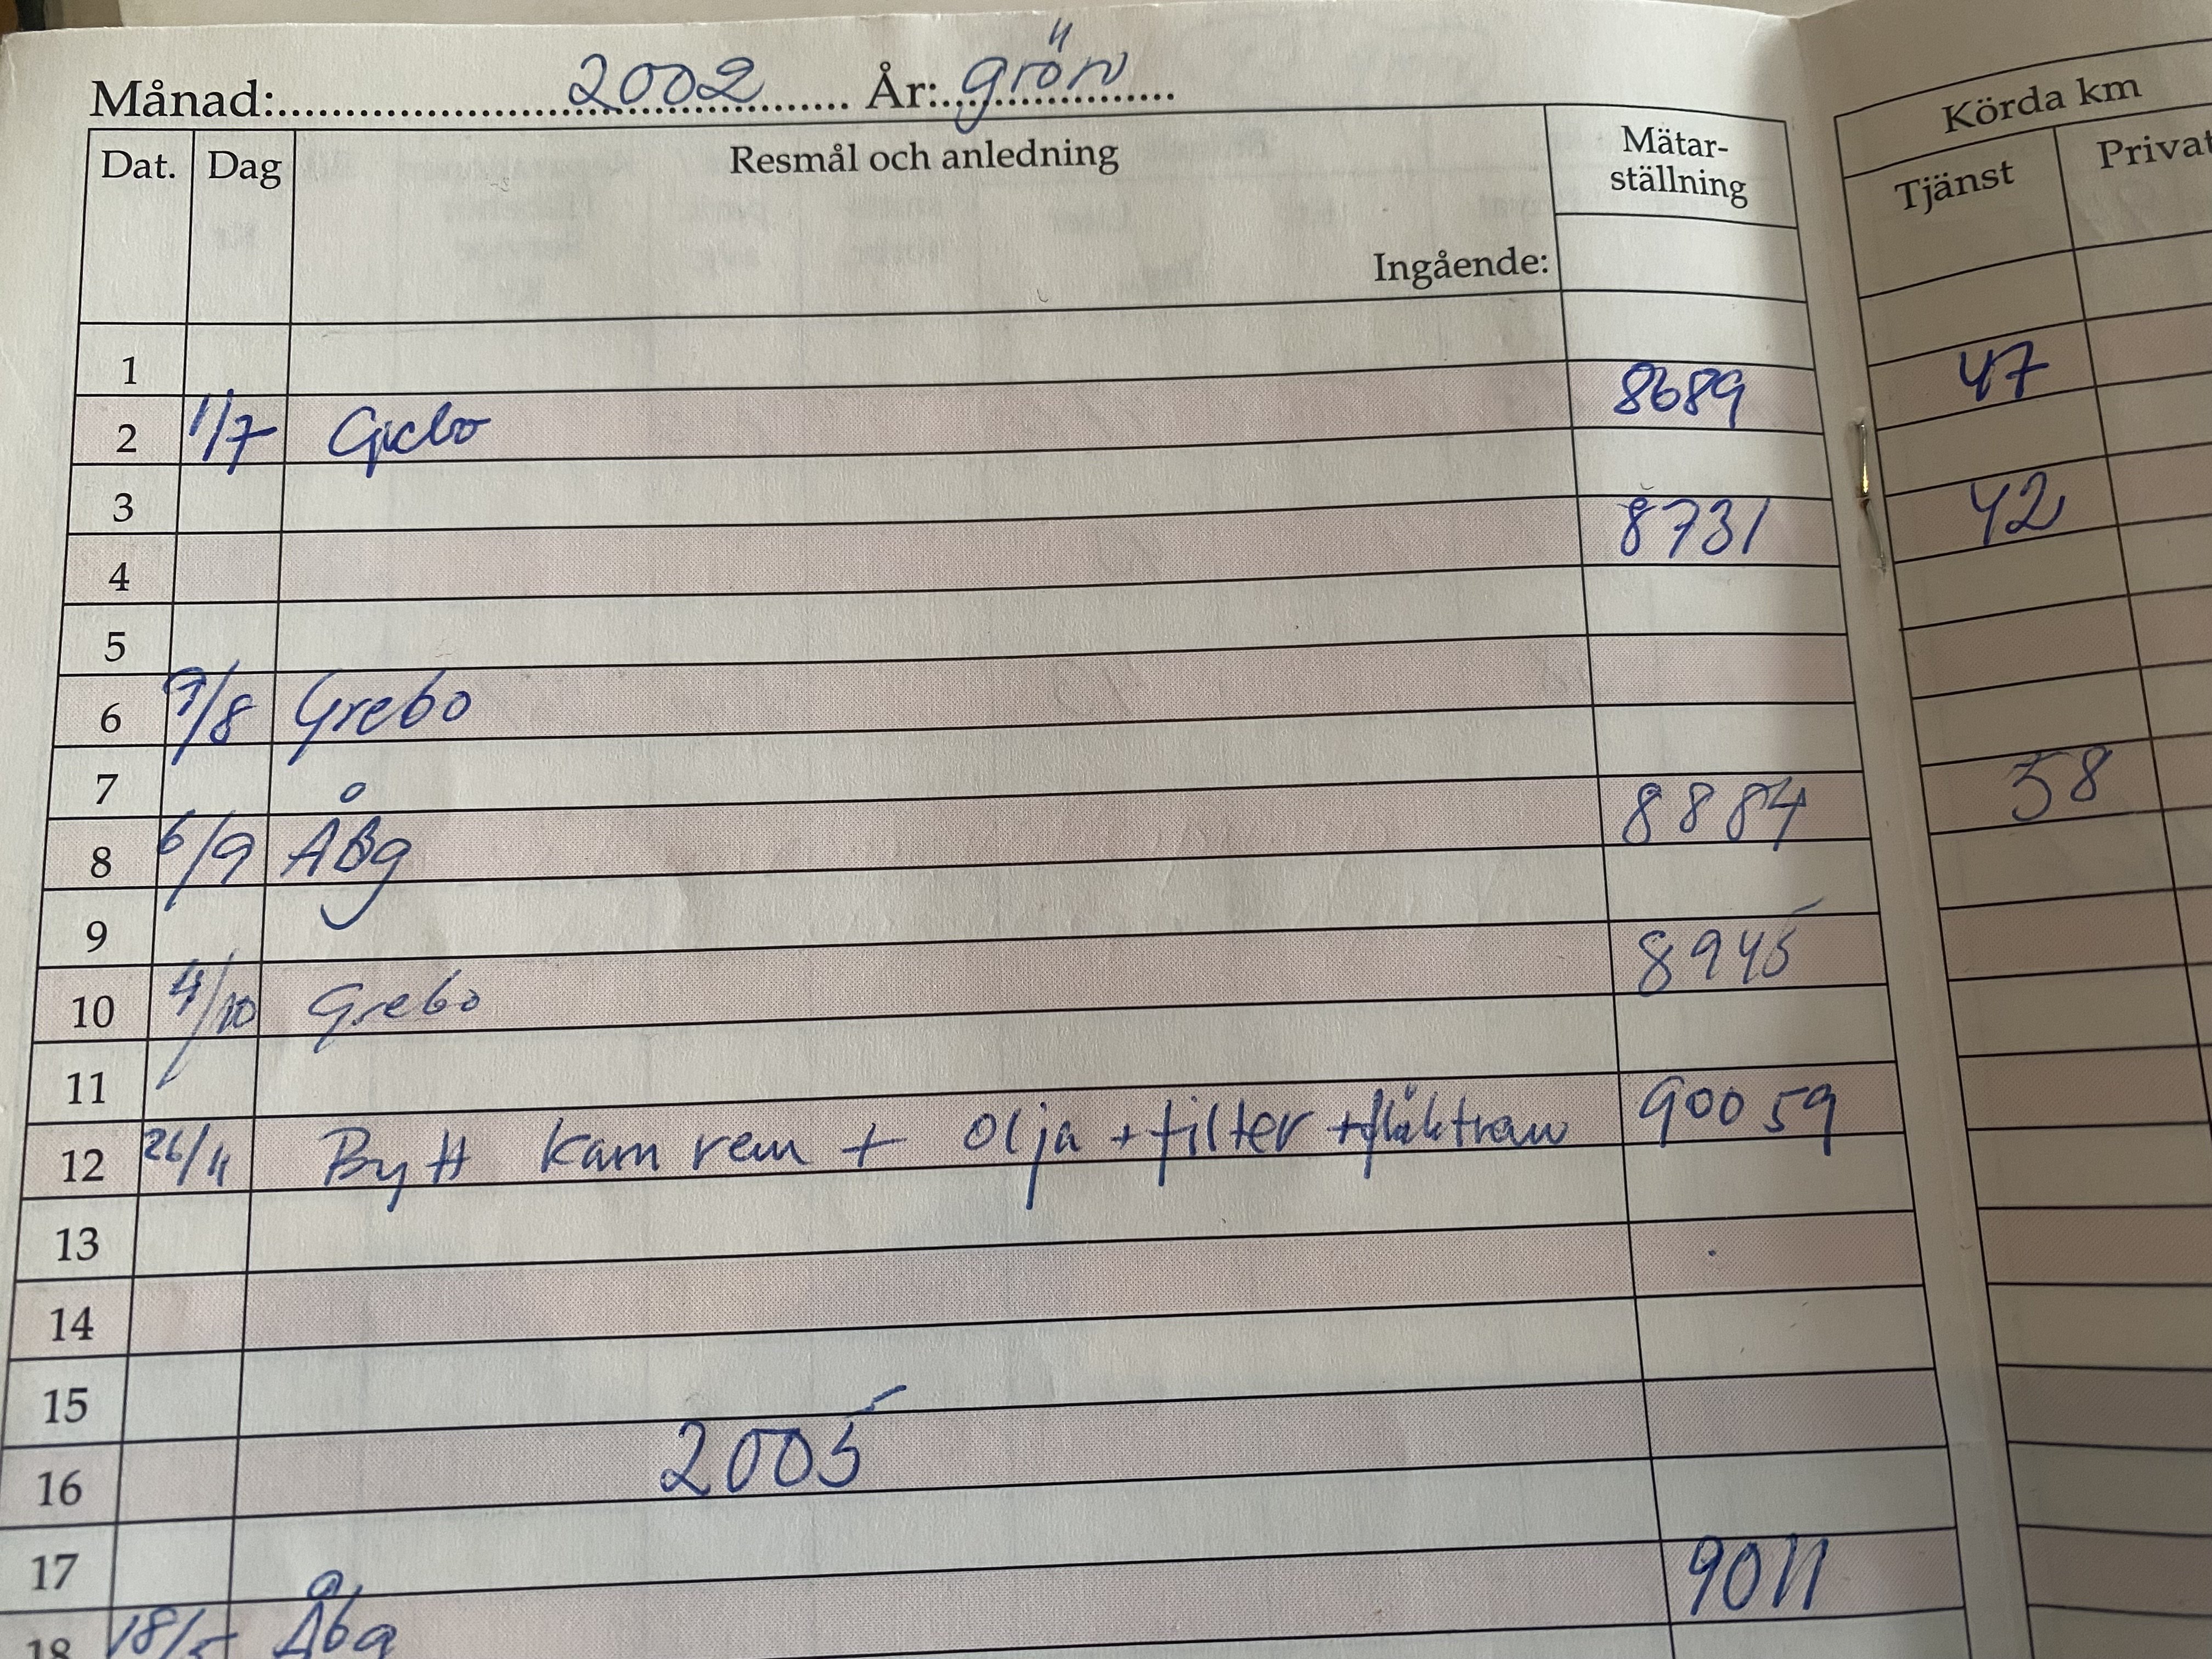 Månad: 2002 År: grön
Körda km
Dat. Dag Resmål och anledning Mätar-
ställning
Tjänst Privat
Ingående:
1
2 1/7 Grebo 8689 47
3
4 8731 42
5
6 7/8 Grebo
7
8 6/9 ÅBg 8884 58
9
10 4/10 Grebo 8945
11
12 26/11 Bytt kam rem + olja + filter + fläktrem 90059
13
14
15
16 2005
17
18 18/5 Åbg 9011